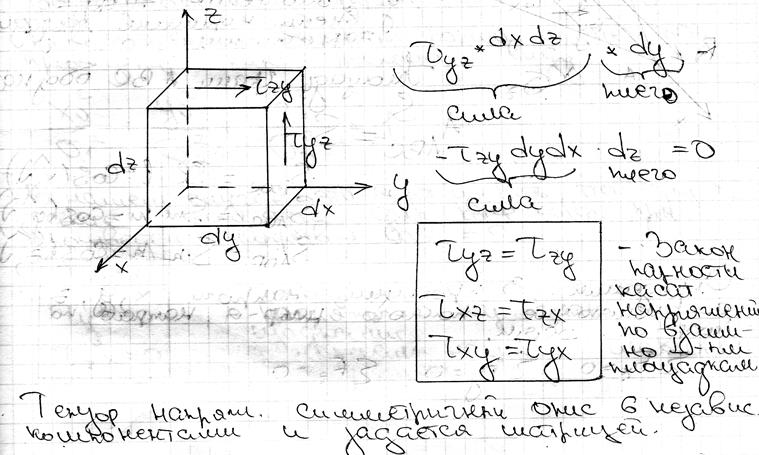 z
τzy
τyz
dz
y
dx
dy
x
τyz * dx dz * dy -
сила плечо
- τzy dy dx · dz = 0
сила плечо
τyz = τzy
τxz = τzx
τxy = τyx
- Закон
парности
касат.
напряжений
по взаим-
но ⊥-ым
площадкам
Тензор напряж. симметричный опис 6 независ.
компонентами и задаётся матрицей.